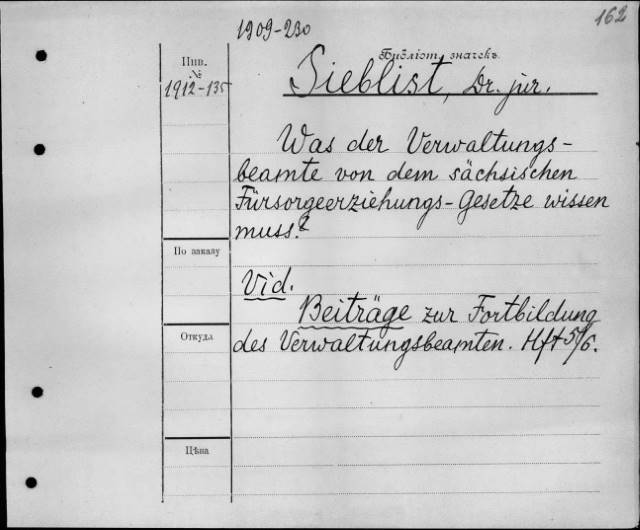 162
1909-230
Библіот. значекъ
Инв.
№
1912-135
Sieblist, Dr. jur.
Was der Verwaltungs-
beamte von dem sächsischen
Fürsorgeerziehungs-Gesetze wissen
muss?
По заказу
Vid.
Beiträge zur Fortbildung
Откуда
des Verwaltungsbeamten. Hft 5/6.
Цѣна